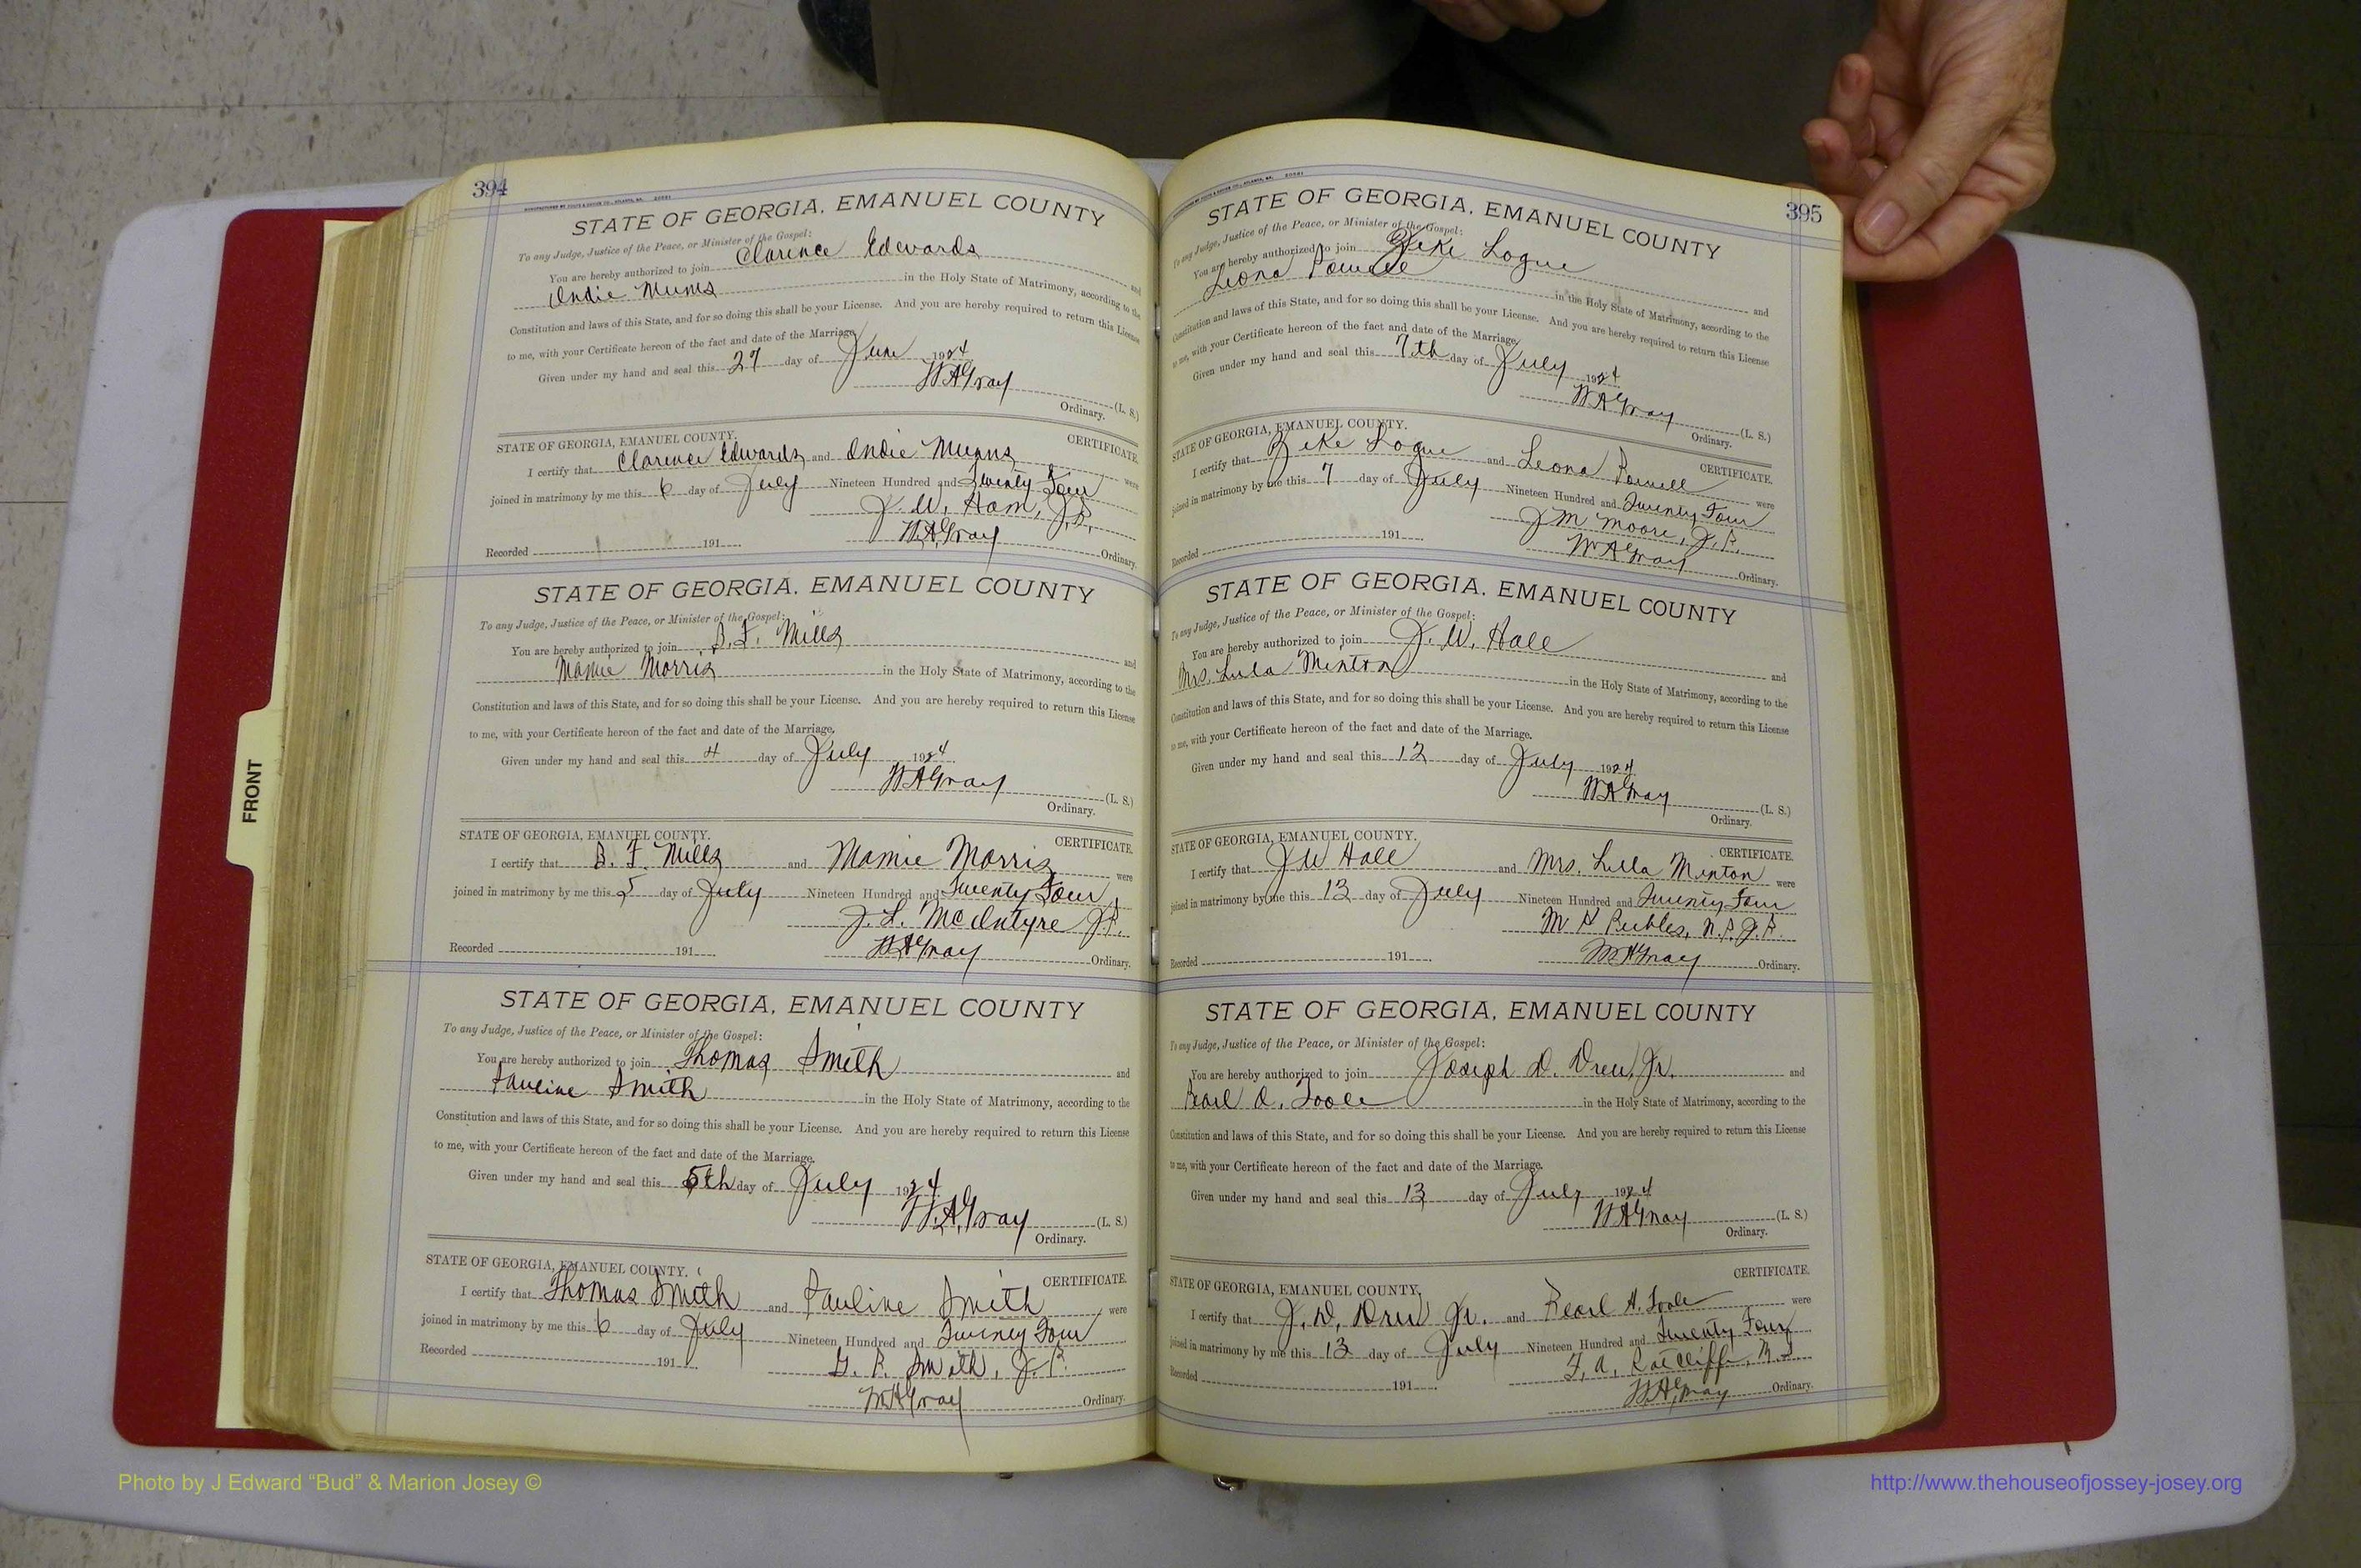 394
STATE OF GEORGIA, EMANUEL COUNTY
To any Judge, Justice of the Peace, or Minister of the Gospel:
You are hereby authorized to join Clarence Edwards and
Ondie Mums in the Holy State of Matrimony, according to the
Constitution and laws of this State, and for so doing this shall be your License. And you are hereby required to return this License
to me, with your Certificate hereon of the fact and date of the Marriage.
Given under my hand and seal this 27 day of June 1924
W A Gray (L. S.)
Ordinary.
STATE OF GEORGIA, EMANUEL COUNTY. CERTIFICATE.
I certify that Clarence Edwards and Ondie Mumns were
joined in matrimony by me this 6 day of July Nineteen Hundred and Twenty Four
J. W. Ham, J.P.
Recorded 191 W.A.Gray Ordinary.
STATE OF GEORGIA, EMANUEL COUNTY
To any Judge, Justice of the Peace, or Minister of the Gospel:
You are hereby authorized to join B.F. Mills and
Mamie Morris in the Holy State of Matrimony, according to the
Constitution and laws of this State, and for so doing this shall be your License. And you are hereby required to return this License
to me, with your Certificate hereon of the fact and date of the Marriage.
Given under my hand and seal this 4 day of July 1924
W A Gray (L. S.)
Ordinary.
STATE OF GEORGIA, EMANUEL COUNTY. CERTIFICATE.
I certify that B. F. Mills and Mamie Morris were
joined in matrimony by me this 5 day of July Nineteen Hundred and Twenty Four
J. L. McIntyre J.P.
Recorded 191 W A Gray Ordinary.
STATE OF GEORGIA, EMANUEL COUNTY
To any Judge, Justice of the Peace, or Minister of the Gospel:
You are hereby authorized to join Thomas Smith and
Pauline Smith in the Holy State of Matrimony, according to the
Constitution and laws of this State, and for so doing this shall be your License. And you are hereby required to return this License
to me, with your Certificate hereon of the fact and date of the Marriage.
Given under my hand and seal this 5th day of July 1924
W.A.Gray (L. S.)
Ordinary.
STATE OF GEORGIA, EMANUEL COUNTY. CERTIFICATE.
I certify that Thomas Smith and Pauline Smith were
joined in matrimony by me this 6 day of July Nineteen Hundred and Twenty Four
Recorded 191 G. R. Smith, J.P.
W A Gray Ordinary.
395
STATE OF GEORGIA, EMANUEL COUNTY
To any Judge, Justice of the Peace, or Minister of the Gospel:
You are hereby authorized to join Zeke Logue and
Leona Powell in the Holy State of Matrimony, according to the
Constitution and laws of this State, and for so doing this shall be your License. And you are hereby required to return this License
to me, with your Certificate hereon of the fact and date of the Marriage.
Given under my hand and seal this 7th day of July 1924
W A Gray (L. S.)
Ordinary.
STATE OF GEORGIA, EMANUEL COUNTY. CERTIFICATE.
I certify that Zeke Logue and Leona Powell were
joined in matrimony by me this 7 day of July Nineteen Hundred and Twenty Four
J M Moore, J.P.
Recorded 191 W A Gray Ordinary.
STATE OF GEORGIA, EMANUEL COUNTY
To any Judge, Justice of the Peace, or Minister of the Gospel:
You are hereby authorized to join J. W. Hall and
Mrs. Lula Minton in the Holy State of Matrimony, according to the
Constitution and laws of this State, and for so doing this shall be your License. And you are hereby required to return this License
to me, with your Certificate hereon of the fact and date of the Marriage.
Given under my hand and seal this 12 day of July 1924
W A Gray (L. S.)
Ordinary.
STATE OF GEORGIA, EMANUEL COUNTY. CERTIFICATE.
I certify that J W Hall and Mrs. Lula Minton were
joined in matrimony by me this 13 day of July Nineteen Hundred and Twenty Four
Peebles, N.P.J.P.
Recorded 191 W A Gray Ordinary.
STATE OF GEORGIA, EMANUEL COUNTY
To any Judge, Justice of the Peace, or Minister of the Gospel:
You are hereby authorized to join Joseph D. Drew, Jr. and
Pearl A. Toole in the Holy State of Matrimony, according to the
Constitution and laws of this State, and for so doing this shall be your License. And you are hereby required to return this License
to me, with your Certificate hereon of the fact and date of the Marriage.
Given under my hand and seal this 13 day of July 1924
W A Gray (L. S.)
Ordinary.
STATE OF GEORGIA, EMANUEL COUNTY, CERTIFICATE.
I certify that J. D. Drew Jr. and Pearl H. Toole were
joined in matrimony by me this 13 day of July Nineteen Hundred and Twenty Four
Recorded 191 F. A. Ratcliffe, M.
W A Gray Ordinary.
FRONT
Photo by J Edward “Bud” & Marion Josey ©
http://www.thehouseofjossey-josey.org